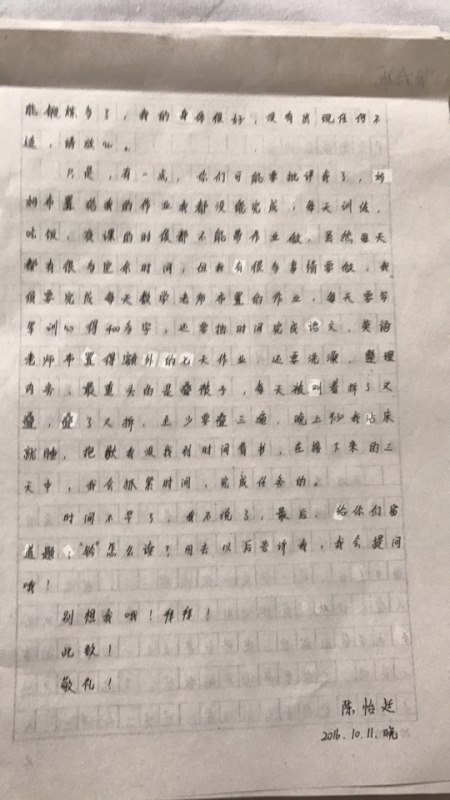 能锻炼多了，我的身体很好，没有出现任何不
适，请放心。
只是，有一点，你们可能要批评我了，妈
妈布置给我的作业我都没能完成，每天训练，
吃饭，夜课的时候都不能带作业做，虽然每天
都有很多空余时间，但我有很多事情要做，我
须要完成每天数学老师布置的作业，每天要写
军训心得400多字，还要抽时间完成语文，英语
老师布置得额外的七天作业，还要洗澡，整理
内务，最重头的是叠被子，每天被叫着拆了又
叠，叠了又拆，至少要叠三遍，晚上我沾床
就睡，抱歉我没找到时间看书，在接下来的三
天中，我会抓紧时间，完成任务的。
时间不早了，我不说了，最后，给你们留
道题，怎么诊？回去以后告诉我，我会提问
哦！
别想我哦！拜拜！
此致！
敬礼！
陈怡廷
2016.10.11.晚